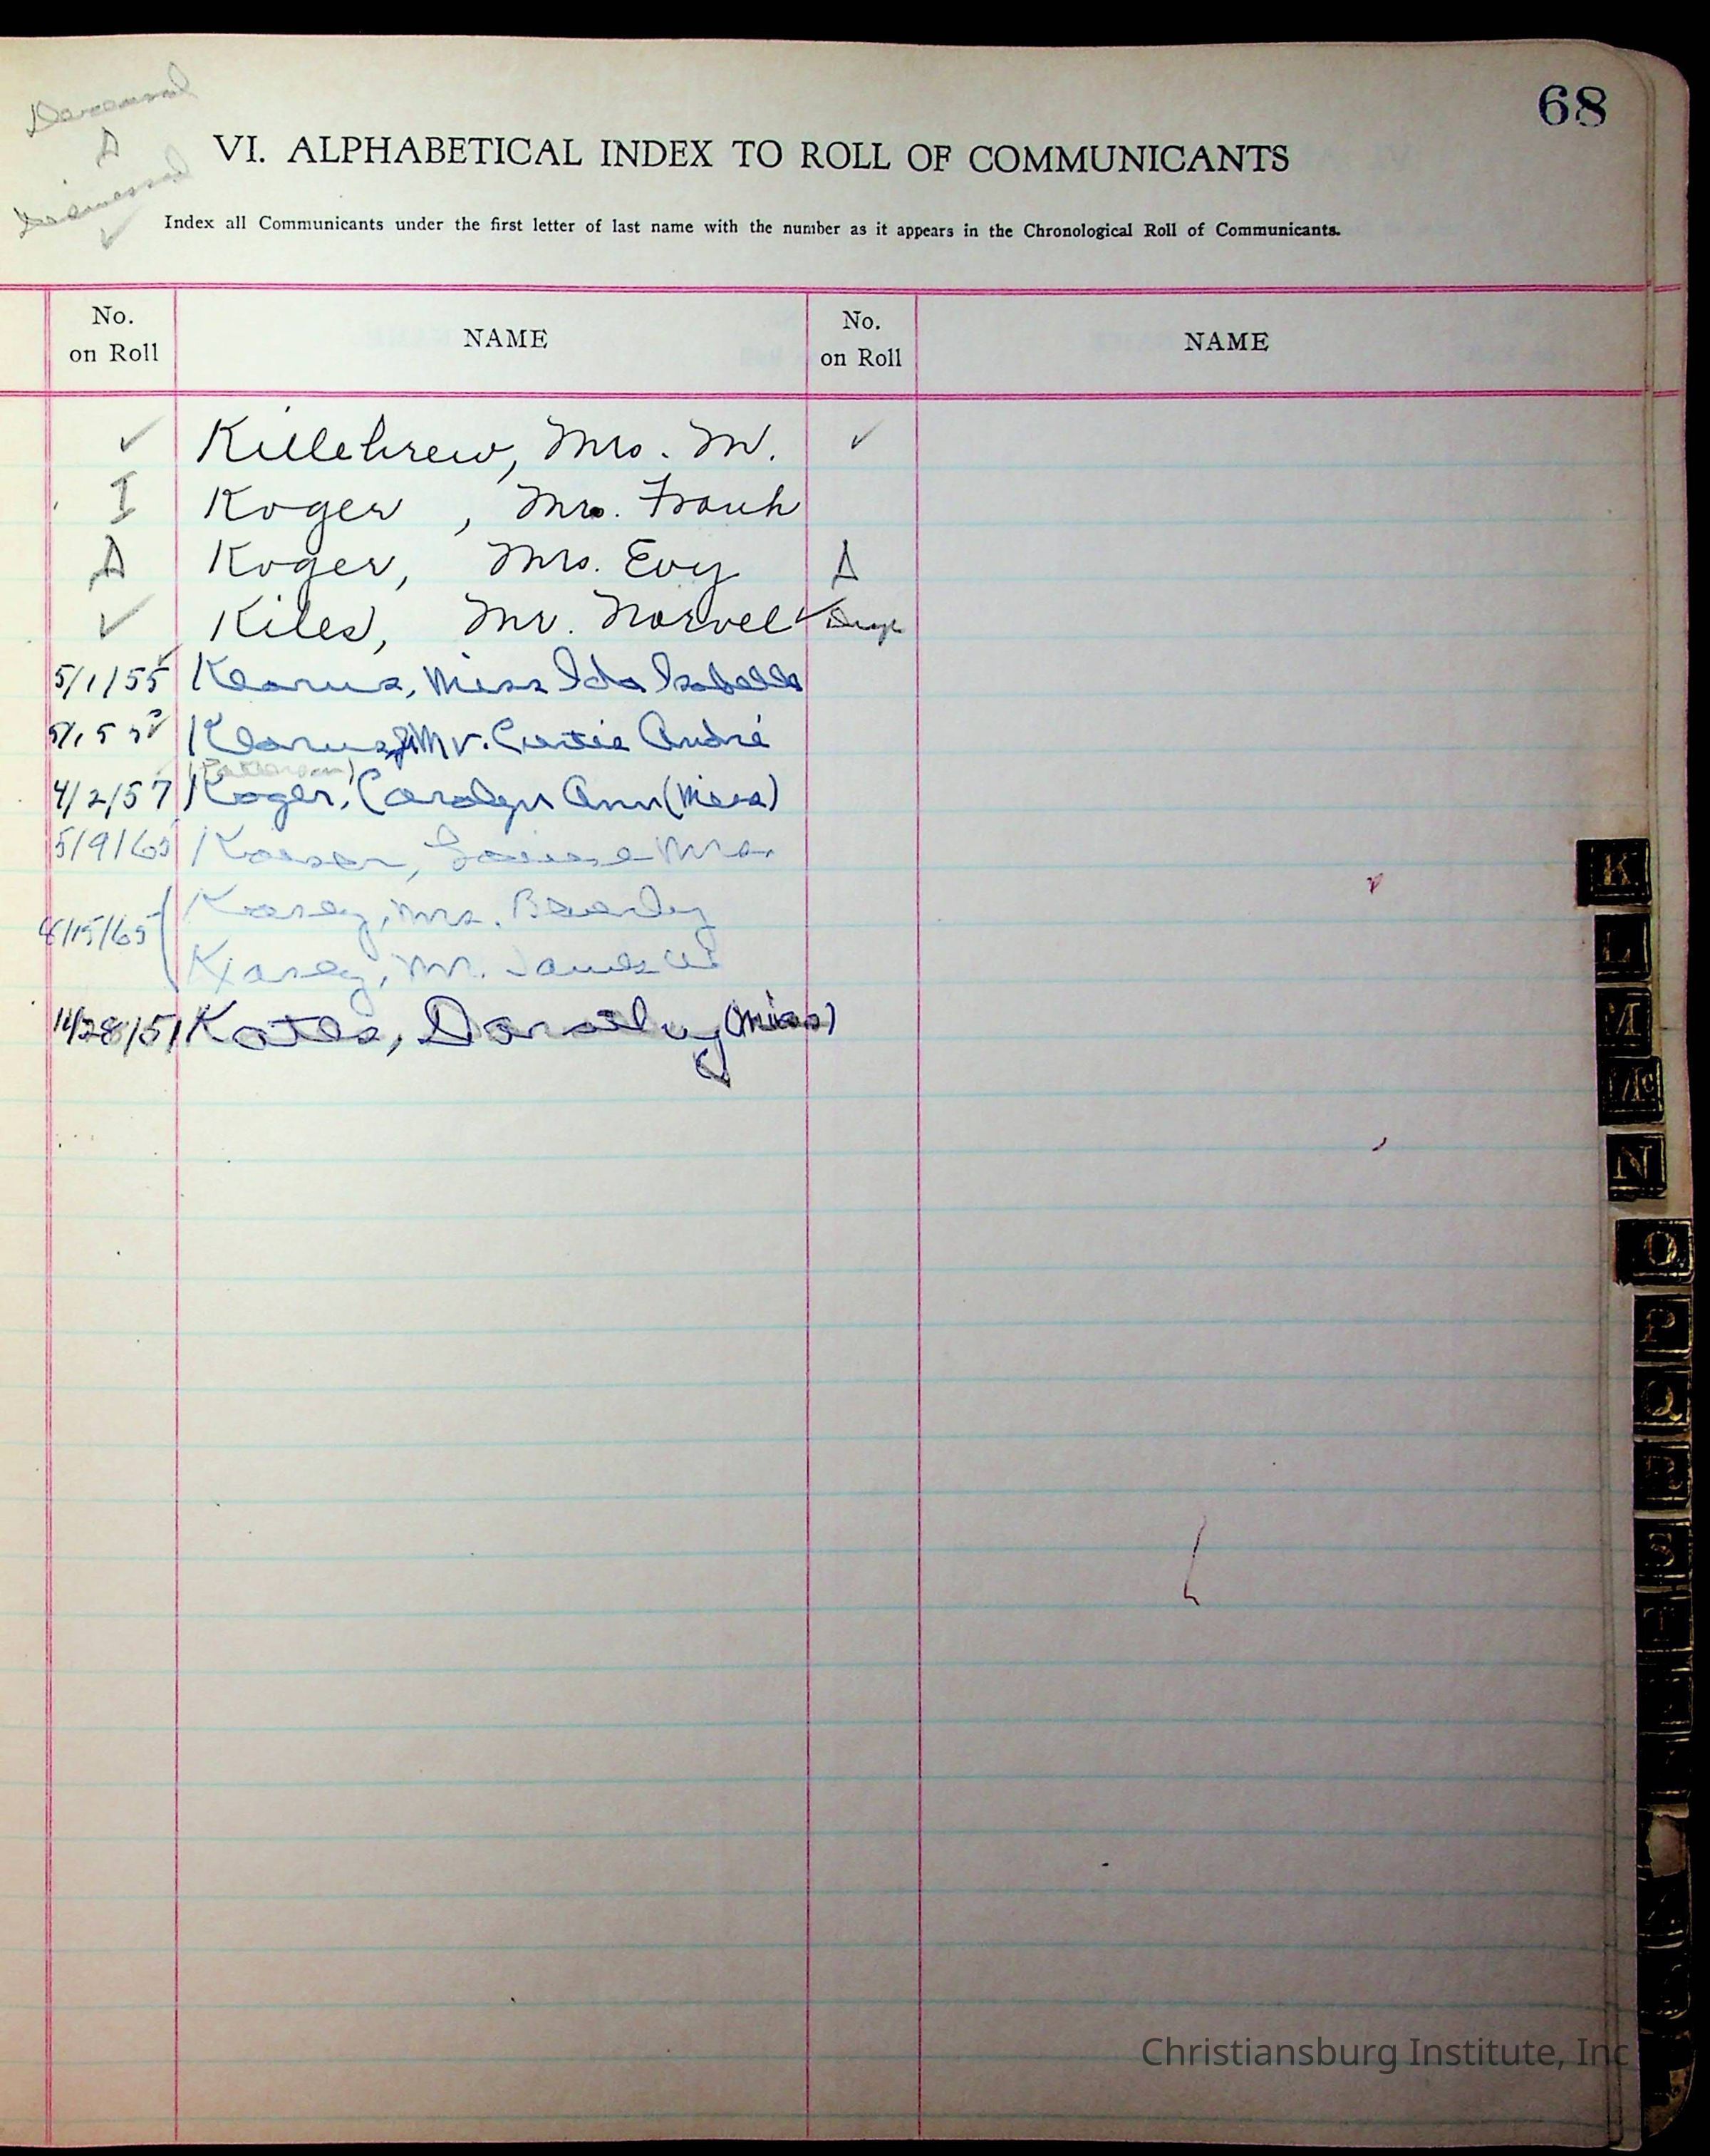 68
Deceased
D
Dismissed
✓
VI. ALPHABETICAL INDEX TO ROLL OF COMMUNICANTS
Index all Communicants under the first letter of last name with the number as it appears in the Chronological Roll of Communicants.
No. on Roll NAME No. on Roll NAME
✓ Killebrew, Mrs. M. ✓
I Koger, Mr. Frank
D Koger, Mrs. Evy D
✓ Kiles, Mr. Norvel ✓
5/1/55 Miss Ida Isabelle
Mr. Curtis André
4/2/57 Koger, Carolyn Ann (Miss)
5/9/65 Louise Mrs.
8/15/65 Kasey, Mrs. Beverly
Kasey, Mr. James
11/28/51 Kates, Dorothy (Miss)
K
L
M
Mc
N
O
P
Q
R
S
T
Christiansburg Institute, Inc